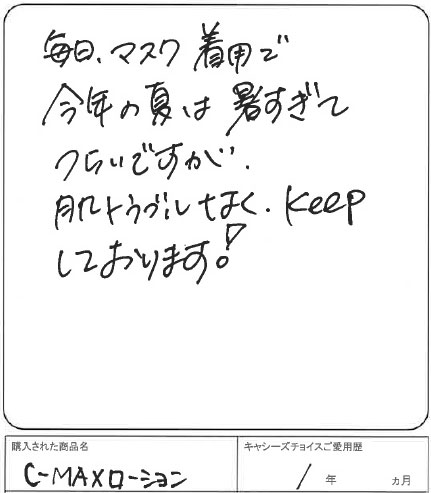 毎日、マスク着用で
今年の夏は暑すぎて
つらいですが、
肌トラブルもなく、keep
しております！
購入された商品名
C-MAXローション
キャシーズチョイスご愛用歴
1年 ヵ月